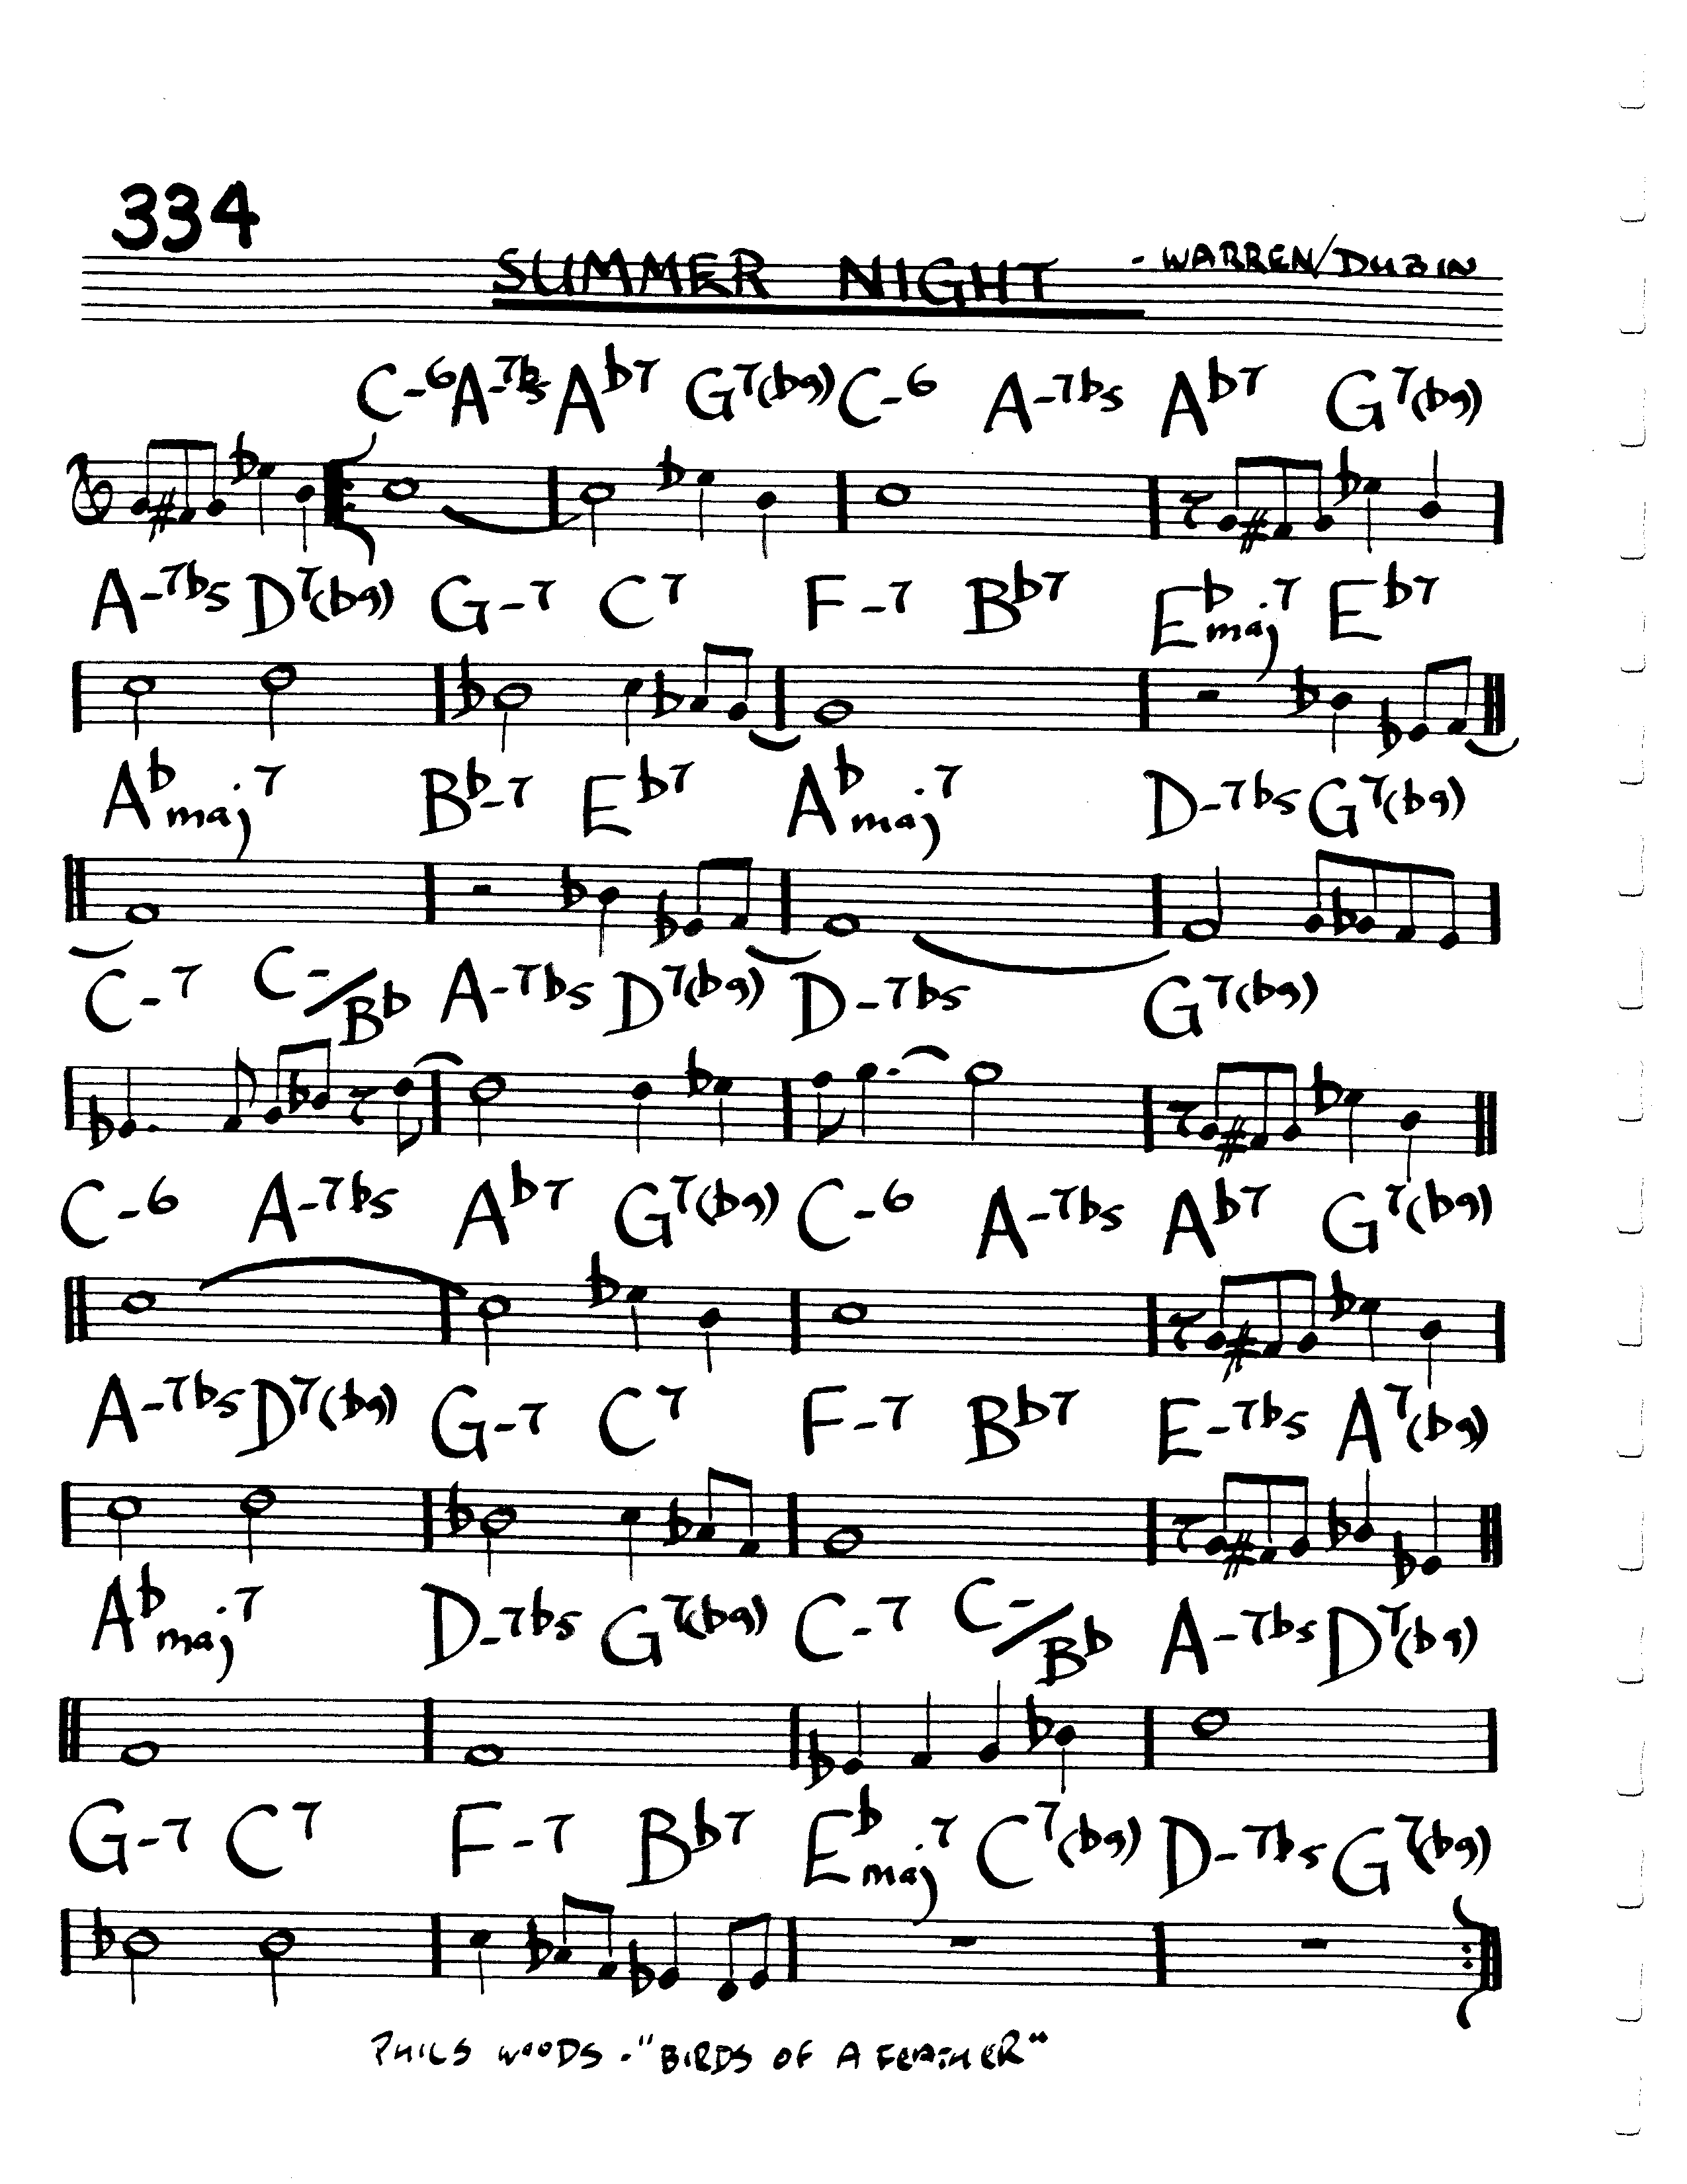 334
SUMMER NIGHT - WARREN/DUBIN
C-6 A-7b5 Ab7 G7(b9) C-6 A-7b5 Ab7 G7(b9)
A-7b5 D7(b9) G-7 C7 F-7 Bb7 Ebmaj7 Eb7
Abmaj7 Bb-7 Eb7 Abmaj7 D-7b5 G7(b9)
C-7 C-/Bb A-7b5 D7(b9) D-7b5 G7(b9)
C-6 A-7b5 Ab7 G7(b9) C-6 A-7b5 Ab7 G7(b9)
A-7b5 D7(b9) G-7 C7 F-7 Bb7 E-7b5 A7(b9)
Abmaj7 D-7b5 G7(b9) C-7 C-/Bb A-7b5 D7(b9)
G-7 C7 F-7 Bb7 Ebmaj7 C7(b9) D-7b5 G7(b9)
PHILS WOODS - "BIRDS OF A FEATHER"